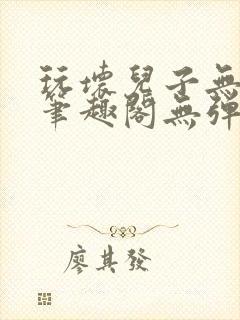 玩壞兒子無
筆趣閣無彈
廖其發